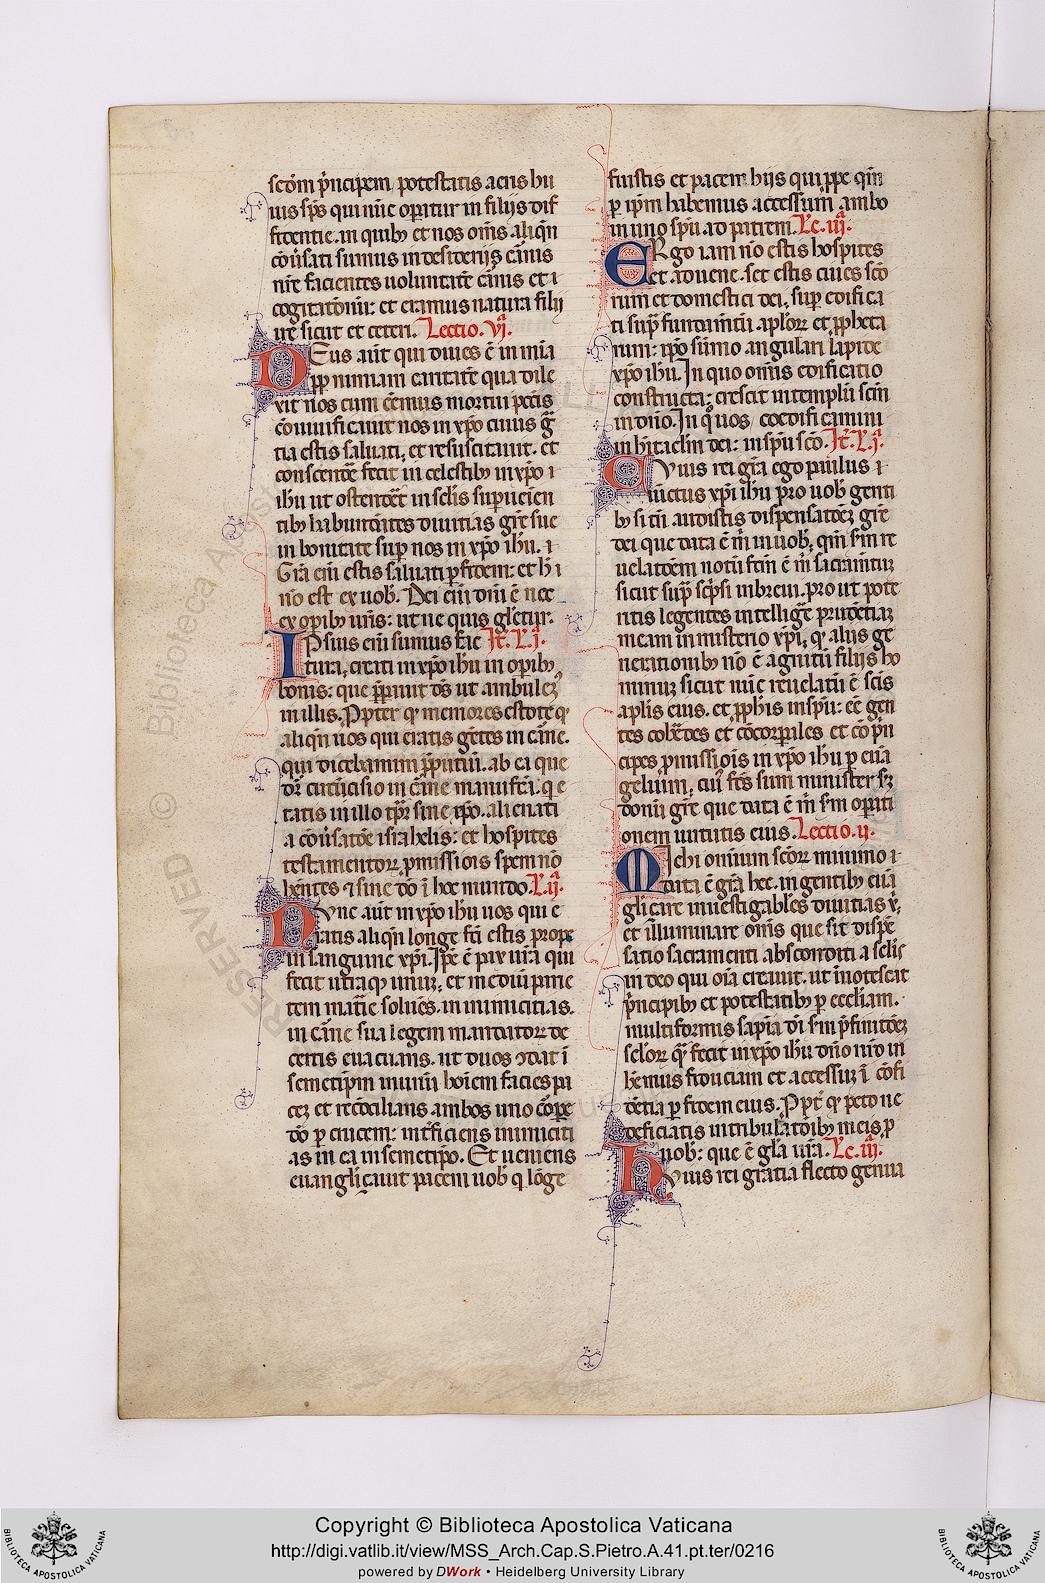 scd̄m p̄ncipem potestatis aeris hu
ius sp̄s qui nūc opatur in filijs dif
fidentie. in quib; et nos om̄s aliqn̄
cōūsati sumus in desiderijs carnis
nr̄e facientes uoluntatē carnis et
cogitationū: et eramus natura filij
ire sicut et ceteri. Lectio. vi.
Deus aut̄ qui diues ē in mīa
pp̄ nimiam caritatē qua dile
xit nos cum eēmus mortui pccīs
cōuiuificauit nos in xp̄o cuius gr̄
tia estis saluati, et resuscitauit. et
consedere fecit in celestib; in xp̄o
ih̄u ut ostenderet in sclīs superuenien
tib; habundātes diuitias gr̄e sue
in bonitate sup nos in xp̄o ih̄u.
Gr̄a eīi estis saluati p fidem: et h̄
nō est ex uob. Dei eīi donū ē nō
ex opib; ur̄is: ut ne quis glietur.
Ipsius eīi sumus fac It. L. i.
tura, creati in xp̄o ih̄u in opib;
bonis: que pp̄auit ds̄ ut ambulem;
in illis. Ppter qd̄ memores estote qd̄
aliqn̄ uos qui eratis gētes in carne.
qui dicebamini pp̄utiū. ab ea que
dr̄ circūcisio in carne manufc̄a: qe
ratis in illo tpr̄ sine xp̄o. alienati
a cōūsatōe israhelis: et hospites
testamentor̄ pmissiōis spem nō
hēntes ⁊ sine dō ī hoc mundo. L. ii.
Nunc aut̄ in xp̄o ih̄u uos qui e
ratis aliqn̄ longe fc̄i estis prope
in sanguine xp̄i. Ipe ē pax nr̄a qui
fecit utraq; unū, et mediū parie
tem matīe soluēs. inimicitias.
in carne sua legem mandator̄ de
cretis euacuans. ut duos ⁊dat ī
semetip̄m in unū hoīem faciēs pa
cez et recōcilians ambos uno corpe
dō p crucem: intficiens inimiciti
as in ea in semetip̄o. Et ueniens
euangliçauit pacem uob; q lōge
fuistis et pacem hijs qui ppe qm̄
p ip̄m habemus accessum ambo
in uno spū ad patrem. Lc. iii.
Ergo iam nō estis hospites
et aduene. set estis ciues scō
rum et domestici dei, sup edifica
ti sup fundamentū apl̄or̄ et pp̄heta
rum: ip̄o sūmo angulari lapide
xp̄o ih̄u. In quo om̄is edificatio
constructa: crescit in templū scm̄
in dnō. In quo ⁊ uos coedificamini
in hītaclm̄ dei: in spū scō. It. L. i.
Huius rei gr̄a ego paulus
uinctus xp̄i ih̄u pro uob; genti
b; si tn̄ audistis dispensatōez gr̄e
dei que data ē m̄ in uob, qm̄ sm̄ re
uelatōem notū fc̄m ē m̄ sacramentū
sicut sup scp̄si in breui. prout pote
ritis legentes intelligē prudētiaz
meam in misterio xp̄i, qd̄ alijs ge
nerationib; nō ē agnitū filijs ho
minum sicut nūc reuelatū ē scīs
apl̄is eius. et pp̄his in spū: eē gen
tes cohedes et cōcorpales et cōpti
cipes pmissiōis in xp̄o ih̄u p euā
gelium, cui fc̄s sum minister sz
donū gr̄e que data ē m̄ sm̄ opati
onem uirtutis eius. Lectio. ii.
Michi omnium scōr̄ minimo
data ē gr̄a hec. in gentib; euā
gliçare inuestigabiles diuitias x̄.
et illuminare om̄s que sit dispē
satio sacramenti absconditi a sclīs
in deo qui oīa creauit. ut inotescat
p̄ncipib; et potestatib; p eccliam.
multiformis sapīa dī sm̄ pfinitōez
sclor̄ q̄ fecit in xp̄o ih̄u dnō nr̄o in
hēmus fiduciam et accessū ī cōfi
dētia p fidem eius. Pptr̄ qd̄ peto ne
deficiatis in tribulatōib; meis p
uob: que ē gl̄a ur̄a. Lc. iii.
Huius rei gratia flecto genua
Copyright © Biblioteca Apostolica Vaticana
http://digi.vatlib.it/view/MSS_Arch.Cap.S.Pietro.A.41.pt.ter/0216
powered by DWork • Heidelberg University Library
BIBLIOTECA APOSTOLICA VATICANA
BIBLIOTECA APOSTOLICA VATICANA